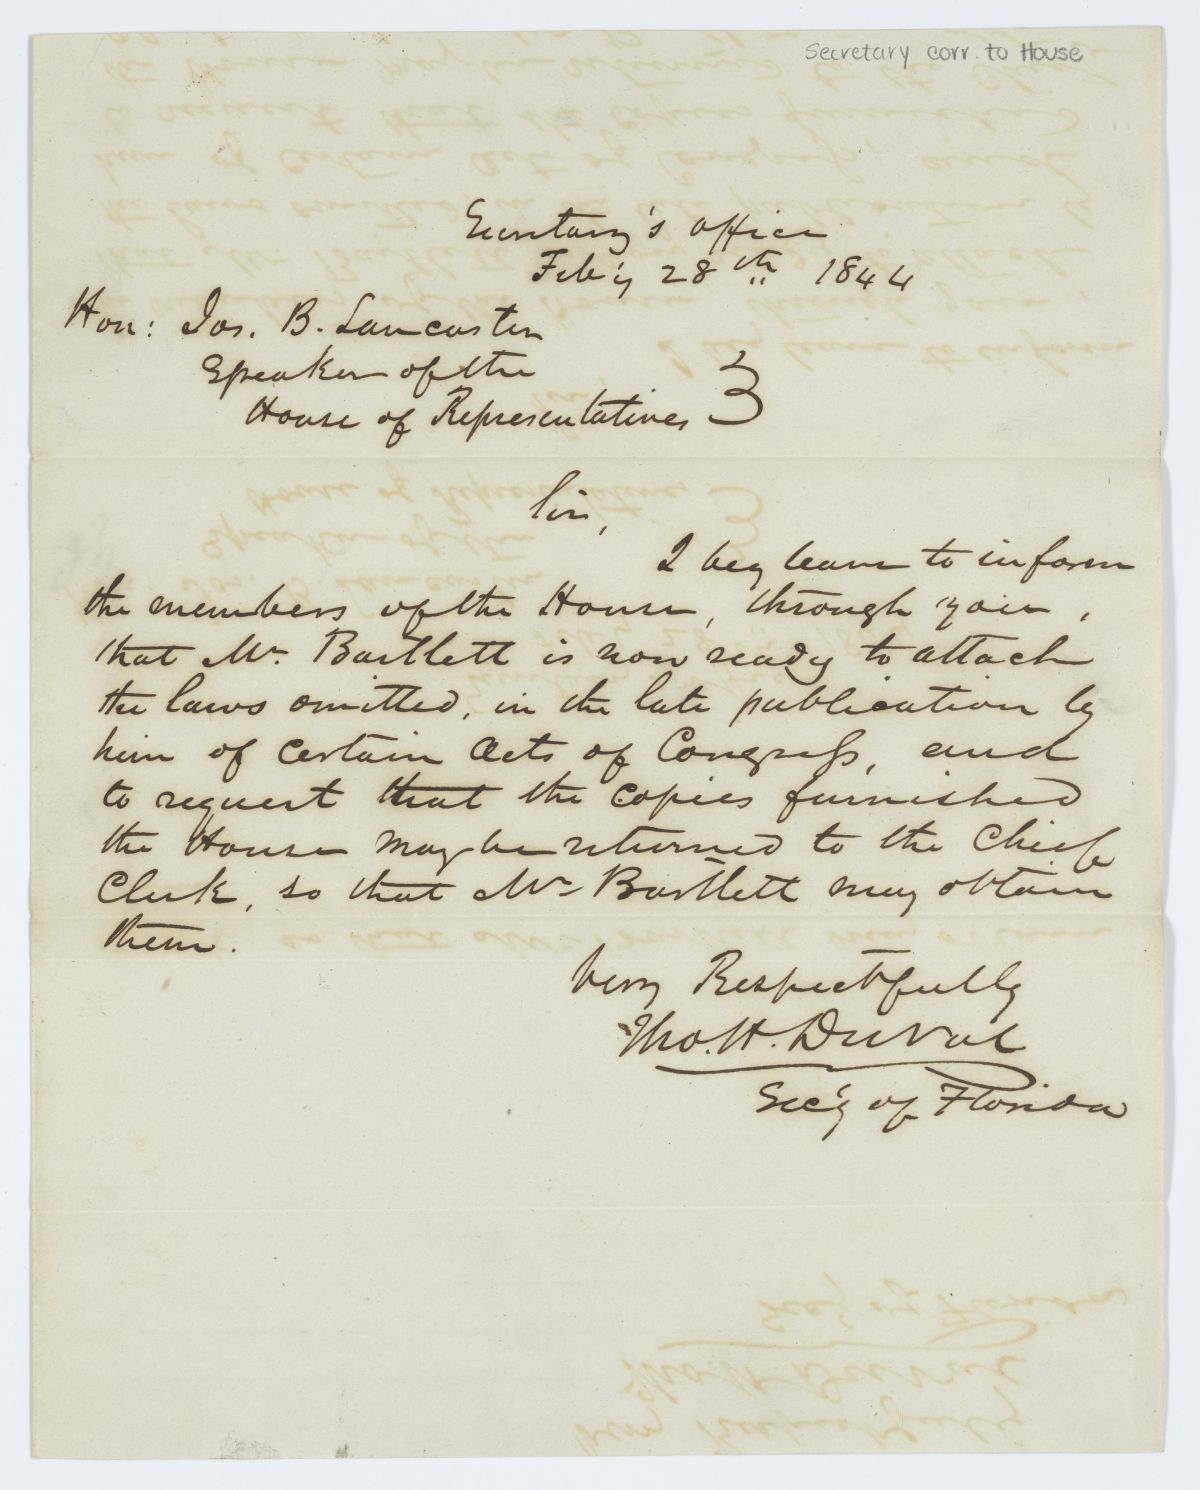 Secretary corr. to House
Secretary's office
Feb'y 28th 1844
Hon: Jos. B. Lancaster
Speaker of the
House of Representatives
Sir,
I beg leave to inform
the members of the House, through you,
that Mr. Bartlett is now ready to attach
the laws omitted, in the late publication by
him of certain Acts of Congress, and
to request that the copies furnished
the House may be returned to the Chief
Clerk, so that Mr Bartlett may obtain
them.
Very Respectfully
Tho. H. DuVal
Sec'y of Florida